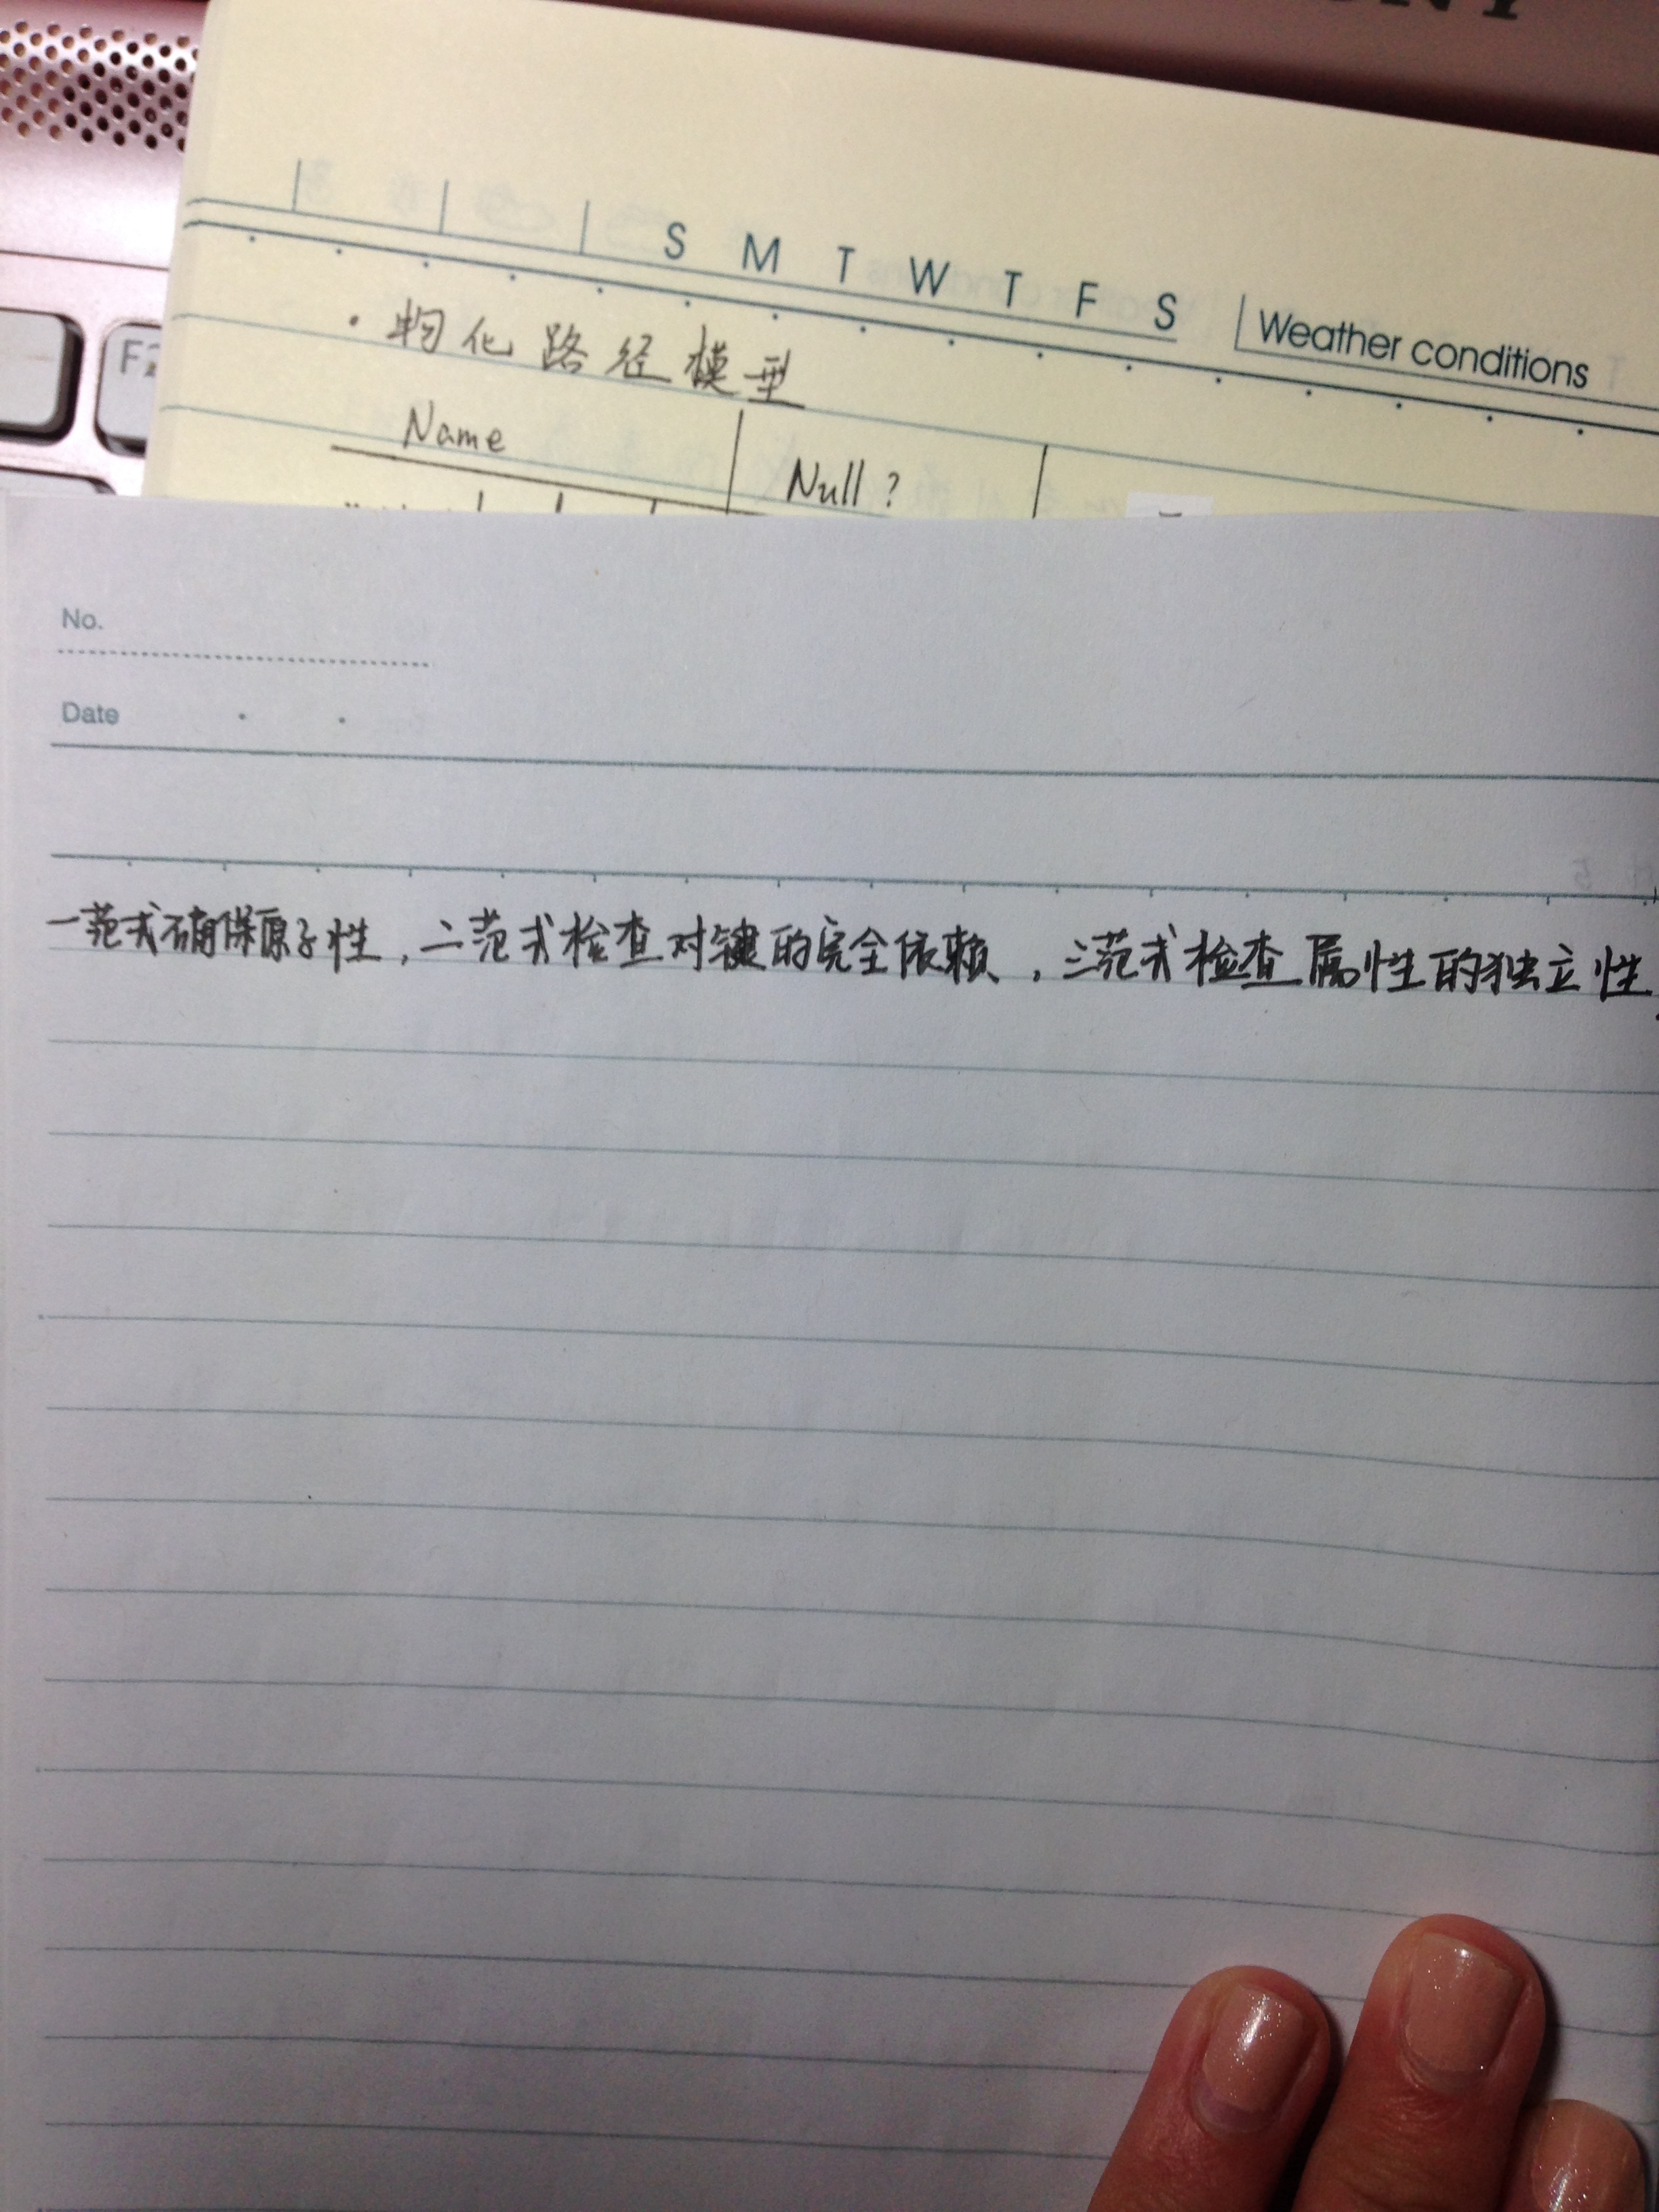 S M T W T F S Weather conditions
·物化路径模型
Name Null?
No.
Date
一范式确保原子性,二范式检查对键的完全依赖,三范式检查属性的独立性